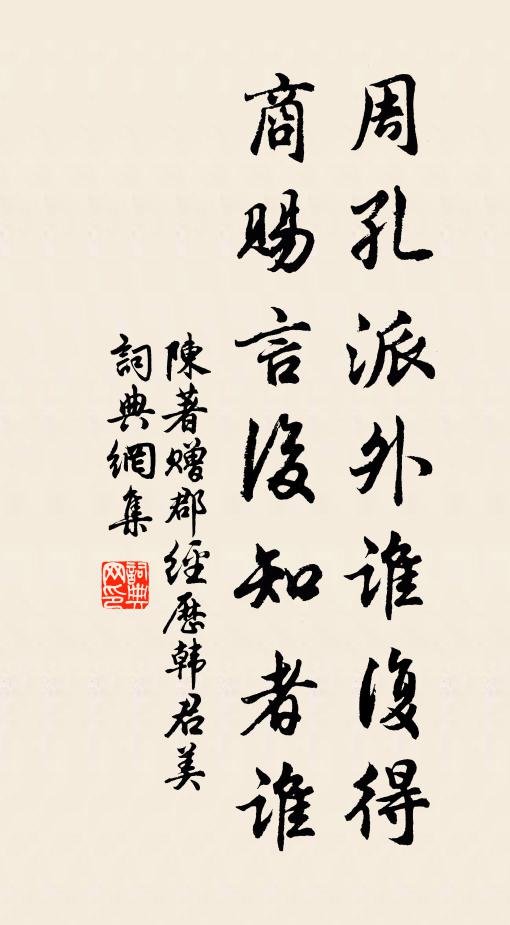 周孔派外谁復得
商賜言後知者谁
陳著贈郡經歷韩君美
詞典網集
詞典网印